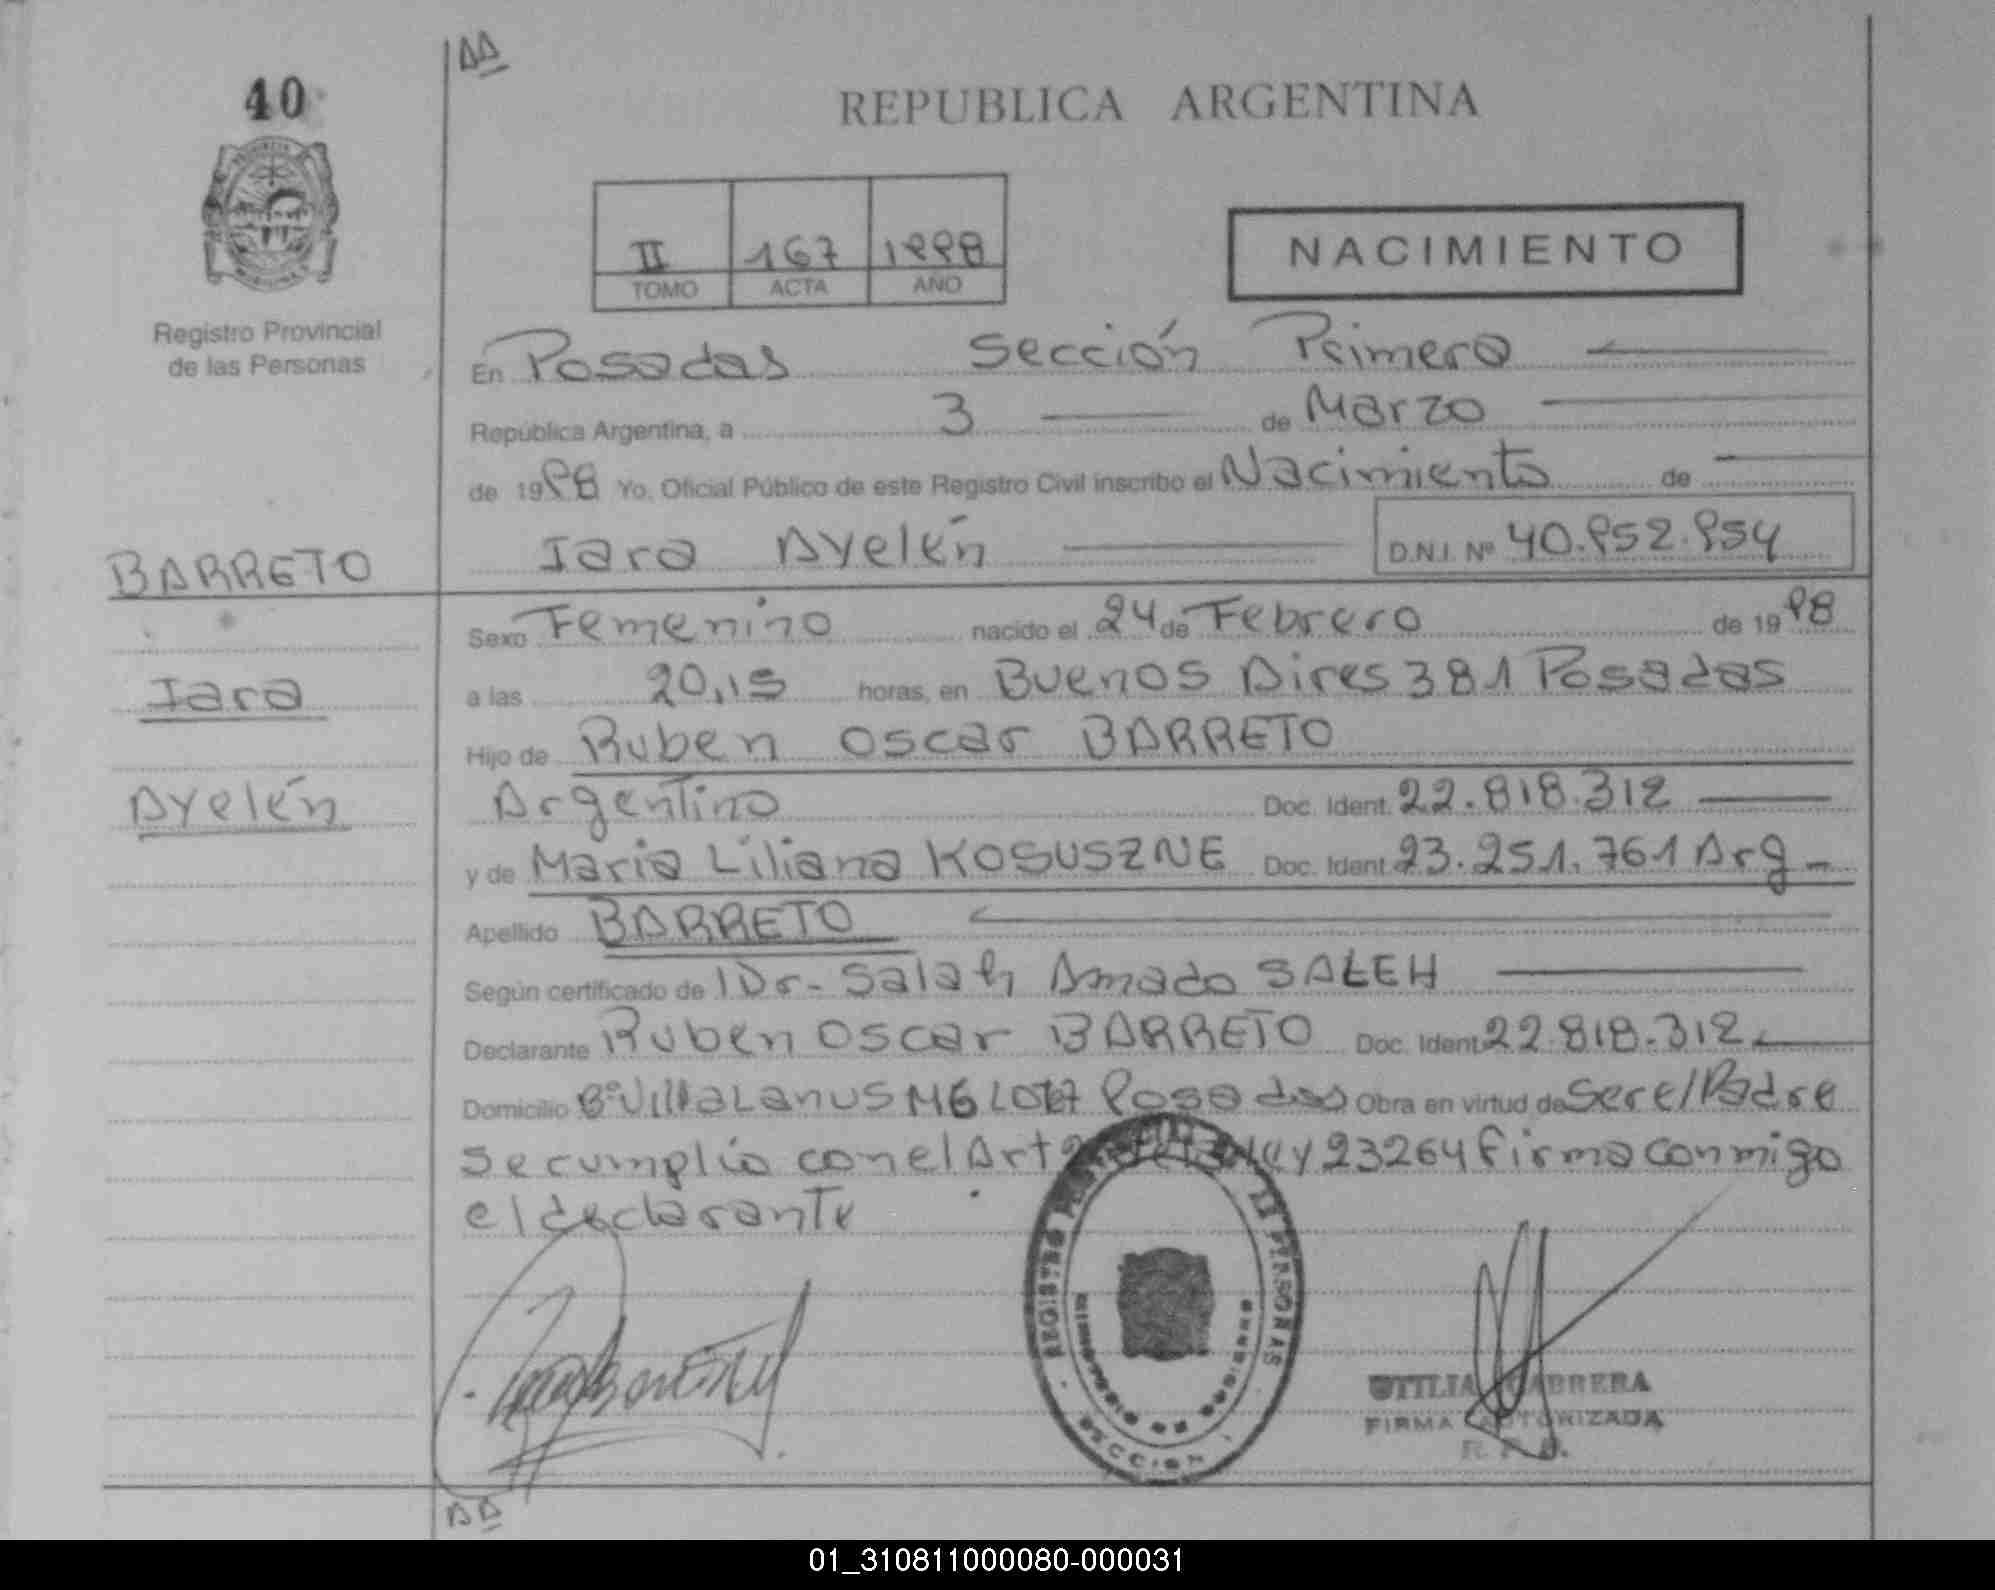 40
AA
REPUBLICA ARGENTINA
II 167 1998
TOMO ACTA AÑO
NACIMIENTO
Registro Provincial
de las Personas
En Posadas Sección Primera
República Argentina, a 3 de Marzo
de 1998 Yo. Oficial Público de este Registro Civil inscribo el Nacimiento de
BARRETO
Iara Ayelén D.N.I. Nº 40.952.954
Sexo Femenino nacido el 24 de Febrero de 1998
Iara
a las 20,15 horas, en Buenos Aires 381 Posadas
Hijo de Ruben Oscar BARRETO
Ayelén
Argentino Doc. Ident. 22.818.312
y de Maria Liliana KOSUSZNE Doc. Ident. 23.251.761 Arg
Apellido BARRETO
Según certificado de Dr- Salah Amado SALEH
Declarante Ruben Oscar BARRETO Doc. Ident 22.818.312
Domicilio Bº Villa Lanus M6 Lote7 Posadas Obra en virtud de Ser el Padre
se cumplio con el Art Ley 23264 firma conmigo
el declarante
REGISTRO DE LAS PERSONAS
SECCION 1
OTILIA CABRERA
FIRMA AUTORIZADA
R. P. P.
AA
01_310811000080-000031